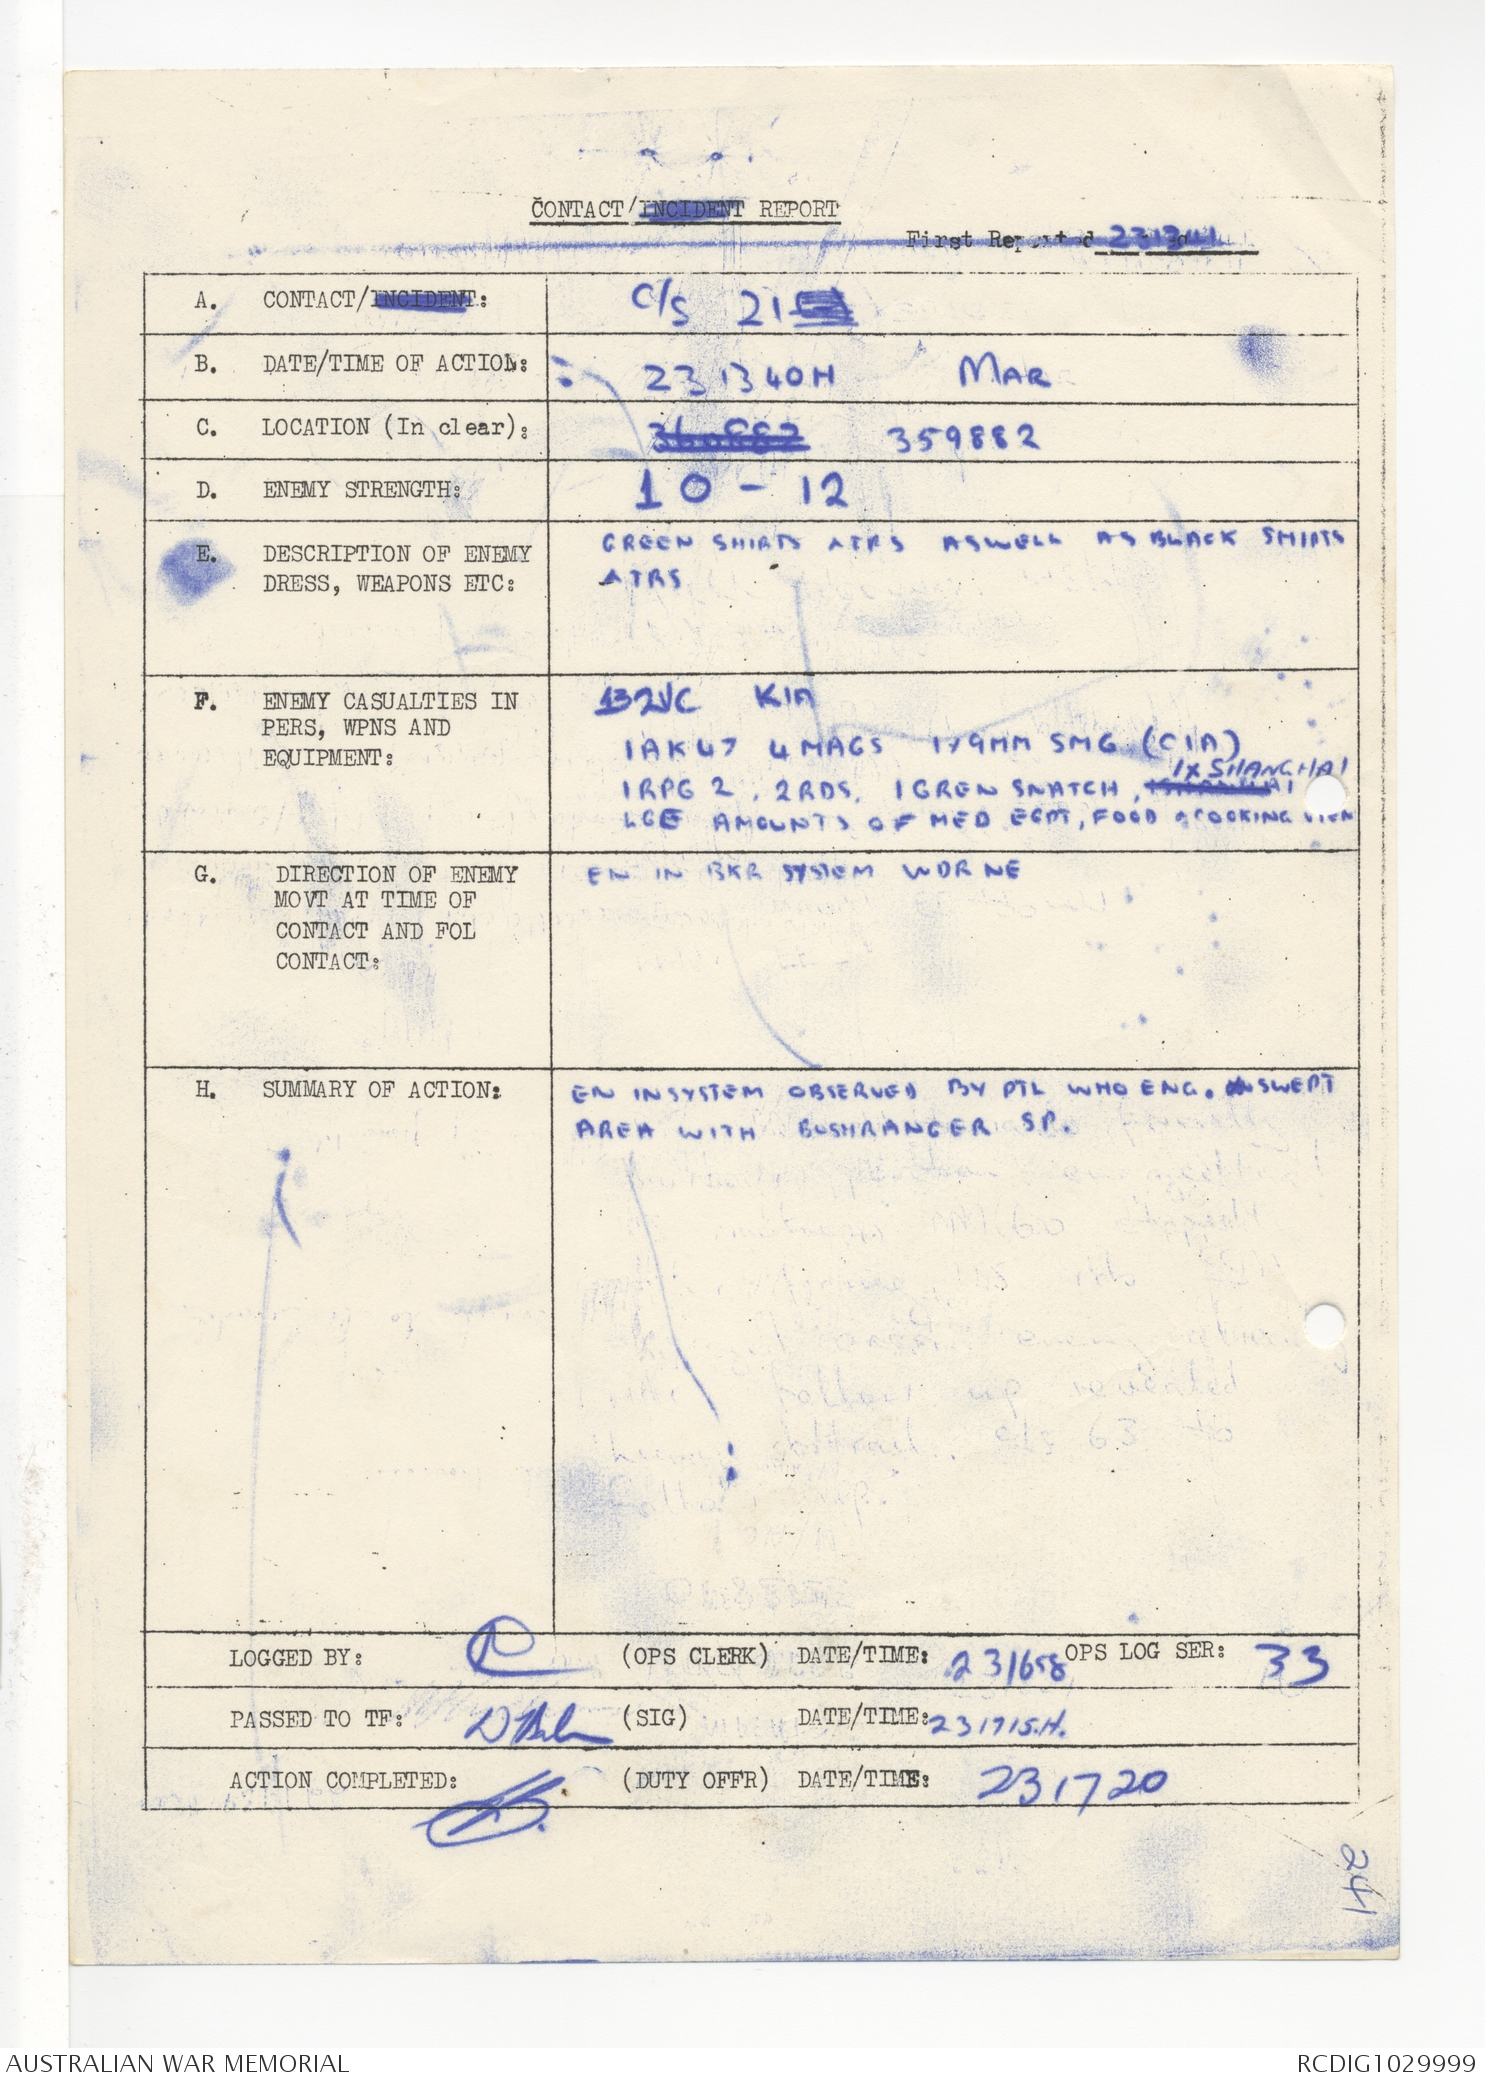 CONTACT/INCIDENT REPORT
First Reported 231341
A. CONTACT/INCIDENT: C/S 21
B. DATE/TIME OF ACTION: 231340H MAR
C. LOCATION (In clear): 360882 359882
D. ENEMY STRENGTH: 10 - 12
E. DESCRIPTION OF ENEMY
DRESS, WEAPONS ETC:
GREEN SHIRTS & TRS ASWELL AS BLACK SHIRTS
& TRS
F. ENEMY CASUALTIES IN
PERS, WPNS AND
EQUIPMENT:
VC KIA
1 AK47 4 MAGS 1 x 9MM SMG (CIA)
1 x SHANGHAI
1 RPG 2, 2 RDS, 1 GREN SNATCH,
LGE AMOUNTS OF MED EQPT, FOOD & COOKING
G. DIRECTION OF ENEMY
MOVT AT TIME OF
CONTACT AND FOL
CONTACT:
EN IN BKR SYSTEM WDR NE
H. SUMMARY OF ACTION:
EN IN SYSTEM OBSERVED BY PTL WHO ENG. SWEPT
AREA WITH BUSHRANGER SP.
LOGGED BY: (OPS CLERK) DATE/TIME: 231658 OPS LOG SER: 33
PASSED TO TF: (SIG) DATE/TIME: 231715.H.
ACTION COMPLETED: (DUTY OFFR) DATE/TIME: 231720
241
AUSTRALIAN WAR MEMORIAL
RCDIG1029999